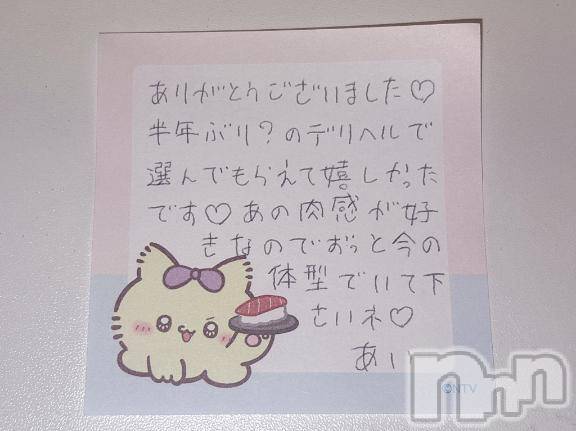 ありがとうございました♡
半年ぶり?のデリヘルで
選んでもらえて嬉しかった
です♡あの肉感が好
きなのでずっと今の
体型でいて下
さいネ♡
あい
©NTV
nnn